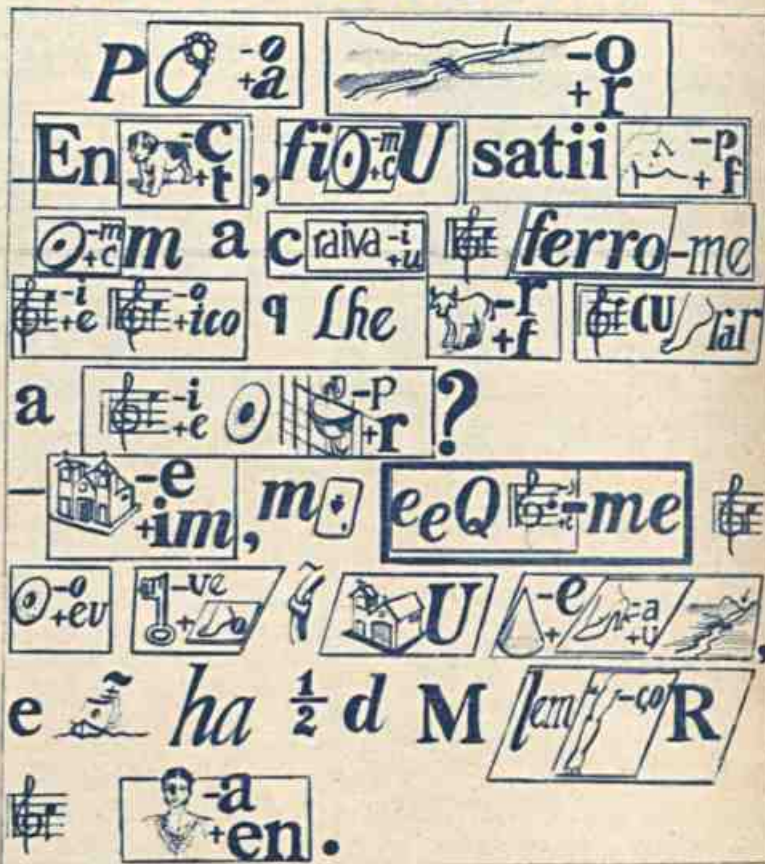 P -o +a -o +r
En -c +t , fi -m +c U satii -p + f
-m +c m a c raiva -i +u ferro-me
-i +e -o +ico q Lhe -r +f cu lar
a -i +e -p +r ?
— -e +im, m eeQ -me
-o +eu -ve + ~ U -e + -a +u ,
e ~ ha 1/2 d M lem -ço R
-a +en.